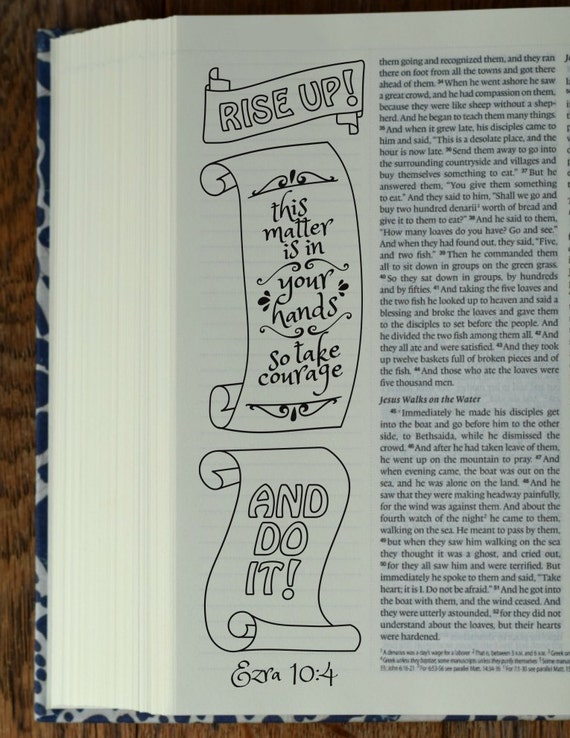 RISE UP!
this
matter
is in
your
hands
so take
courage
AND
DO
IT!
Ezra 10:4
them going and recognized them, and they ran
there on foot from all the towns and got there
ahead of them. 34 When he went ashore he saw
a great crowd, and he had compassion on them,
because they were like sheep without a shep-
herd. And he began to teach them many things.
35 And when it grew late, his disciples came to
him and said, "This is a desolate place, and the
hour is now late. 36 Send them away to go into
the surrounding countryside and villages and
buy themselves something to eat." 37 But he
answered them, "You give them something
to eat." And they said to him, "Shall we go and
buy two hundred denarii² worth of bread and
give it to them to eat?" 38 And he said to them,
"How many loaves do you have? Go and see."
And when they had found out, they said, "Five,
and two fish." 39 Then he commanded them
all to sit down in groups on the green grass.
40 So they sat down in groups, by hundreds
and by fifties. 41 And taking the five loaves and
the two fish he looked up to heaven and said a
blessing and broke the loaves and gave them
to the disciples to set before the people. And
he divided the two fish among them all. 42 And
they all ate and were satisfied. 43 And they took
up twelve baskets full of broken pieces and of
the fish. 44 And those who ate the loaves were
five thousand men.
Jesus Walks on the Water
45 Immediately he made his disciples get
into the boat and go before him to the other
side, to Bethsaida, while he dismissed the
crowd. 46 And after he had taken leave of them,
he went up on the mountain to pray. 47 And
when evening came, the boat was out on the
sea, and he was alone on the land. 48 And he
saw that they were making headway painfully,
for the wind was against them. And about the
fourth watch of the night² he came to them,
walking on the sea. He meant to pass by them,
49 but when they saw him walking on the sea
they thought it was a ghost, and cried out,
50 for they all saw him and were terrified. But
immediately he spoke to them and said, "Take
heart; it is I. Do not be afraid." 51 And he got into
the boat with them, and the wind ceased. And
they were utterly astounded, 52 for they did not
understand about the loaves, but their hearts
were hardened.